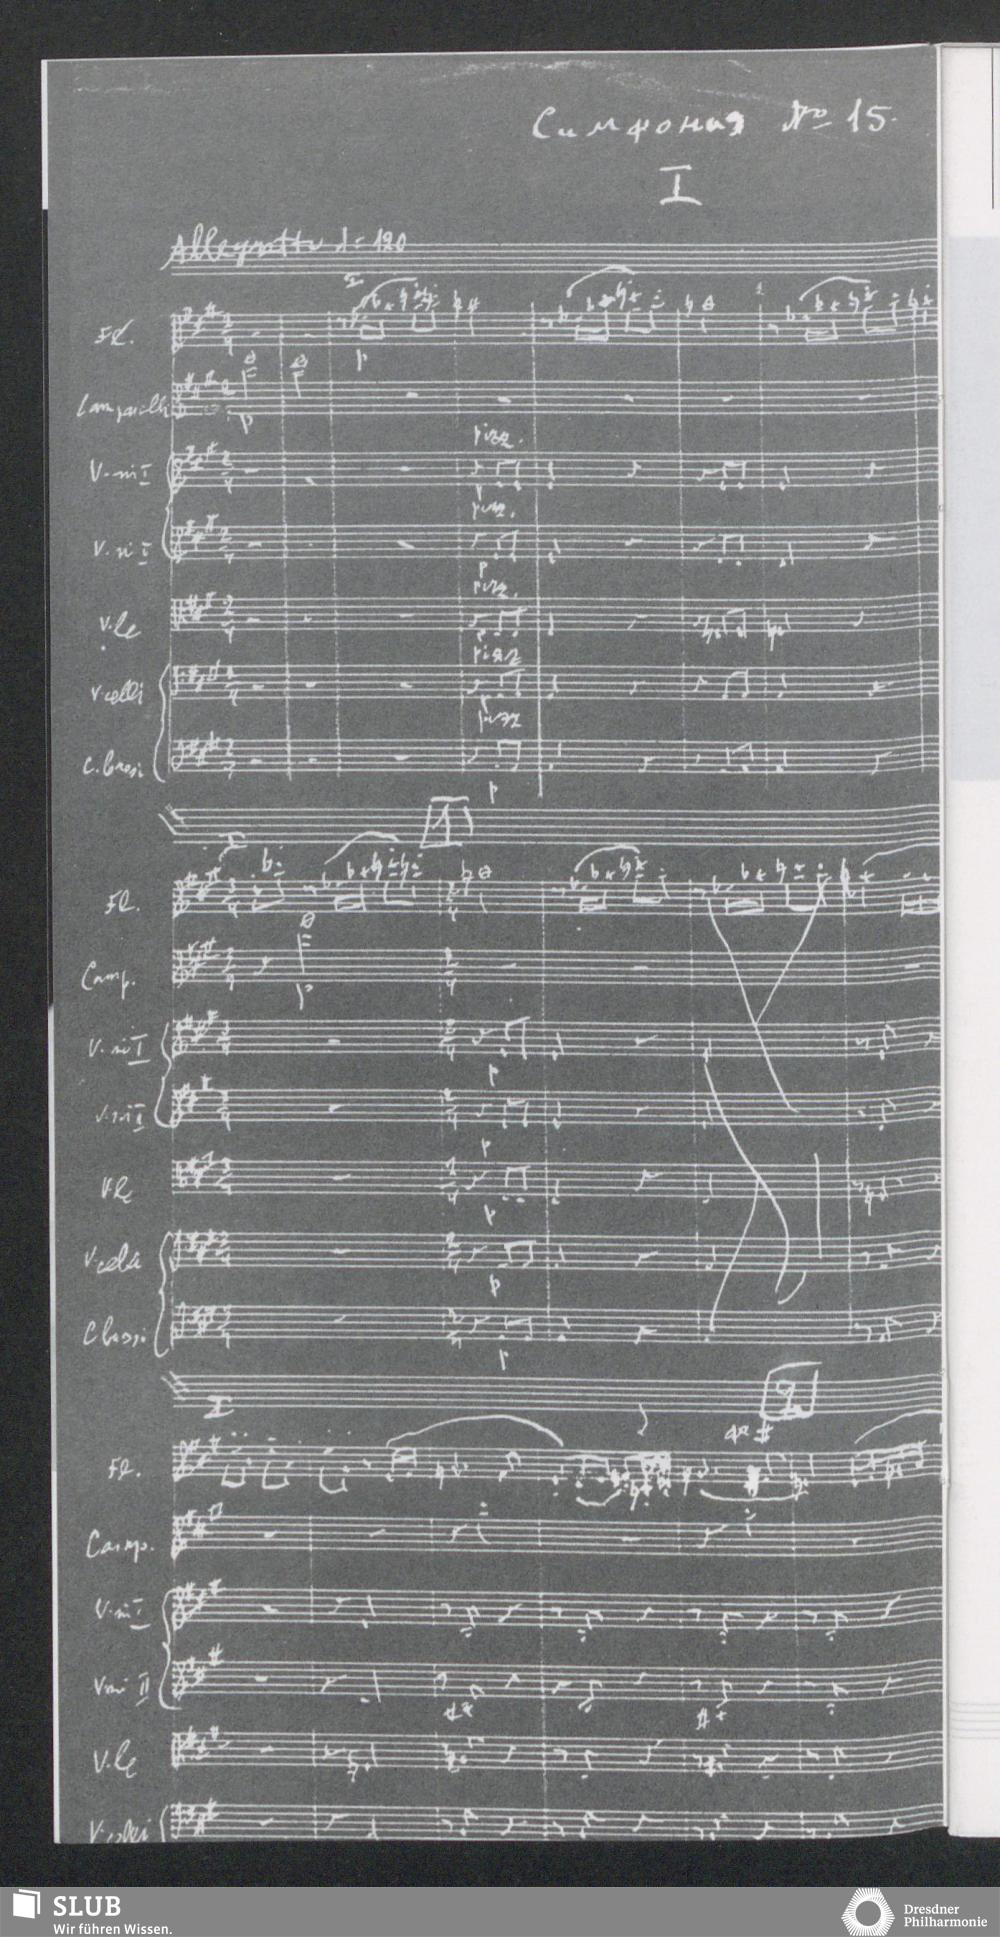 Симфония № 15.
I
Allegretto ♩= 120
I
Fl.
p
Campanelli
p
pizz.
V-ni I
p
pizz.
V-ni II
p
pizz.
V-le
p
pizz
V-celli
p
pizz
C. bassi
p
1
I
Fl.
Camp.
p
V-ni I
p
V-ni II
p
V-le
p
V-celli
p
C bassi
p
2
I
Fl.
Camp.
V-ni I
V-ni II
V-le
V-celli
SLUB
Wir führen Wissen.
Dresdner
Philharmonie